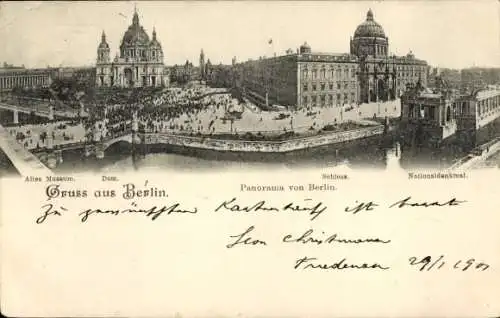 Altes Museum. Dom. Schloss. Nationaldenkmal.
Gruss aus Berlin. Panorama von Berlin.
Zu ist bereit
Leon Christmann
Friedenau 29/1 1901